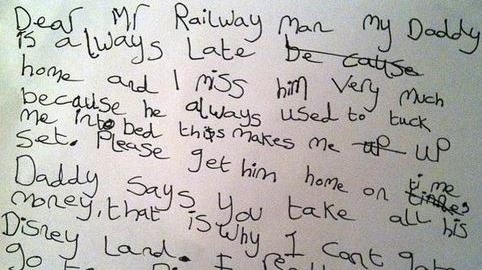 Dear Mr Railway Man My Daddy
is always Late because
home and I miss him Very Much
because he always used to tuck
me into bed this makes me up UP
set. Please get him home on time
Daddy says you take all his
money, that is why I cant
Disney Land. I
go to